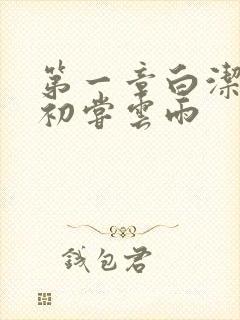 第一章白潔
初嘗雲雨
錢包君